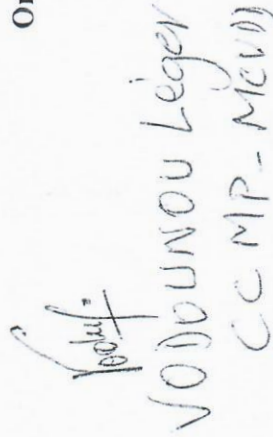 Or
VODOUNOU Léger
CC MP-MCVDD